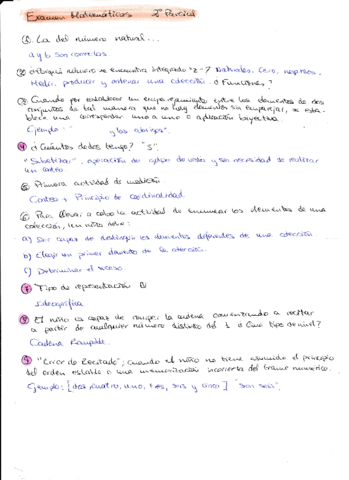 Examen Matemáticas 2º Parcial
① La del número natural...
a y b son correctas.
② ¿En qué número se encuentra integrado "2-7" Naturales, Cero, negativos.
Medir, producir y ordenar una colección. ¿Funciones?
③ Cuando por establecer un emparejamiento entre los elementos de dos
conjuntos de tal manera que no hay elementos sin emparejar, se esta-
blece una correspondencia uno a uno o aplicación biyectiva.
Ejemplo: " y los abrigos".
④ ¿Cuántos dedos tengo? "5".
"Subitizar", operación de golpe de vista y sin necesidad de realizar
un conteo
⑤ Primera actividad de medición
Conteo + Principio de cardinalidad.
⑥ Para llevar a cabo la actividad de enumerar los elementos de una
colección, un niño debe:
a) Ser capaz de distinguir los elementos diferentes de una colección.
b) Elegir un primer elemento de la colección.
c) Determinar el sucesor
⑦ Tipo de representación
Ideográfica
⑧ El niño es capaz de romper la cadena comenzando a recitar
a partir de cualquier número distinto del 1 ¿Qué tipo de nivel?
Cadena Rompible.
⑨ "Error de Recitado"; cuando el niño no tiene asumido el principio
del orden estable o una memorización incorrecta del tramo numérico.
Ejemplo: [dos, cuatro, uno, tres, seis y cinco] "son seis".